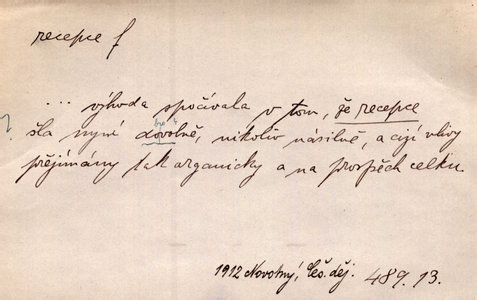 recepce f
... výhoda spočívala v tom, že recepce
šla nyní dovolně, nikoliv násilně, a cizí vlivy
přejímány tak organicky a na prospěch celku.
1912 Novotný, Čes. děj. 489. 13.